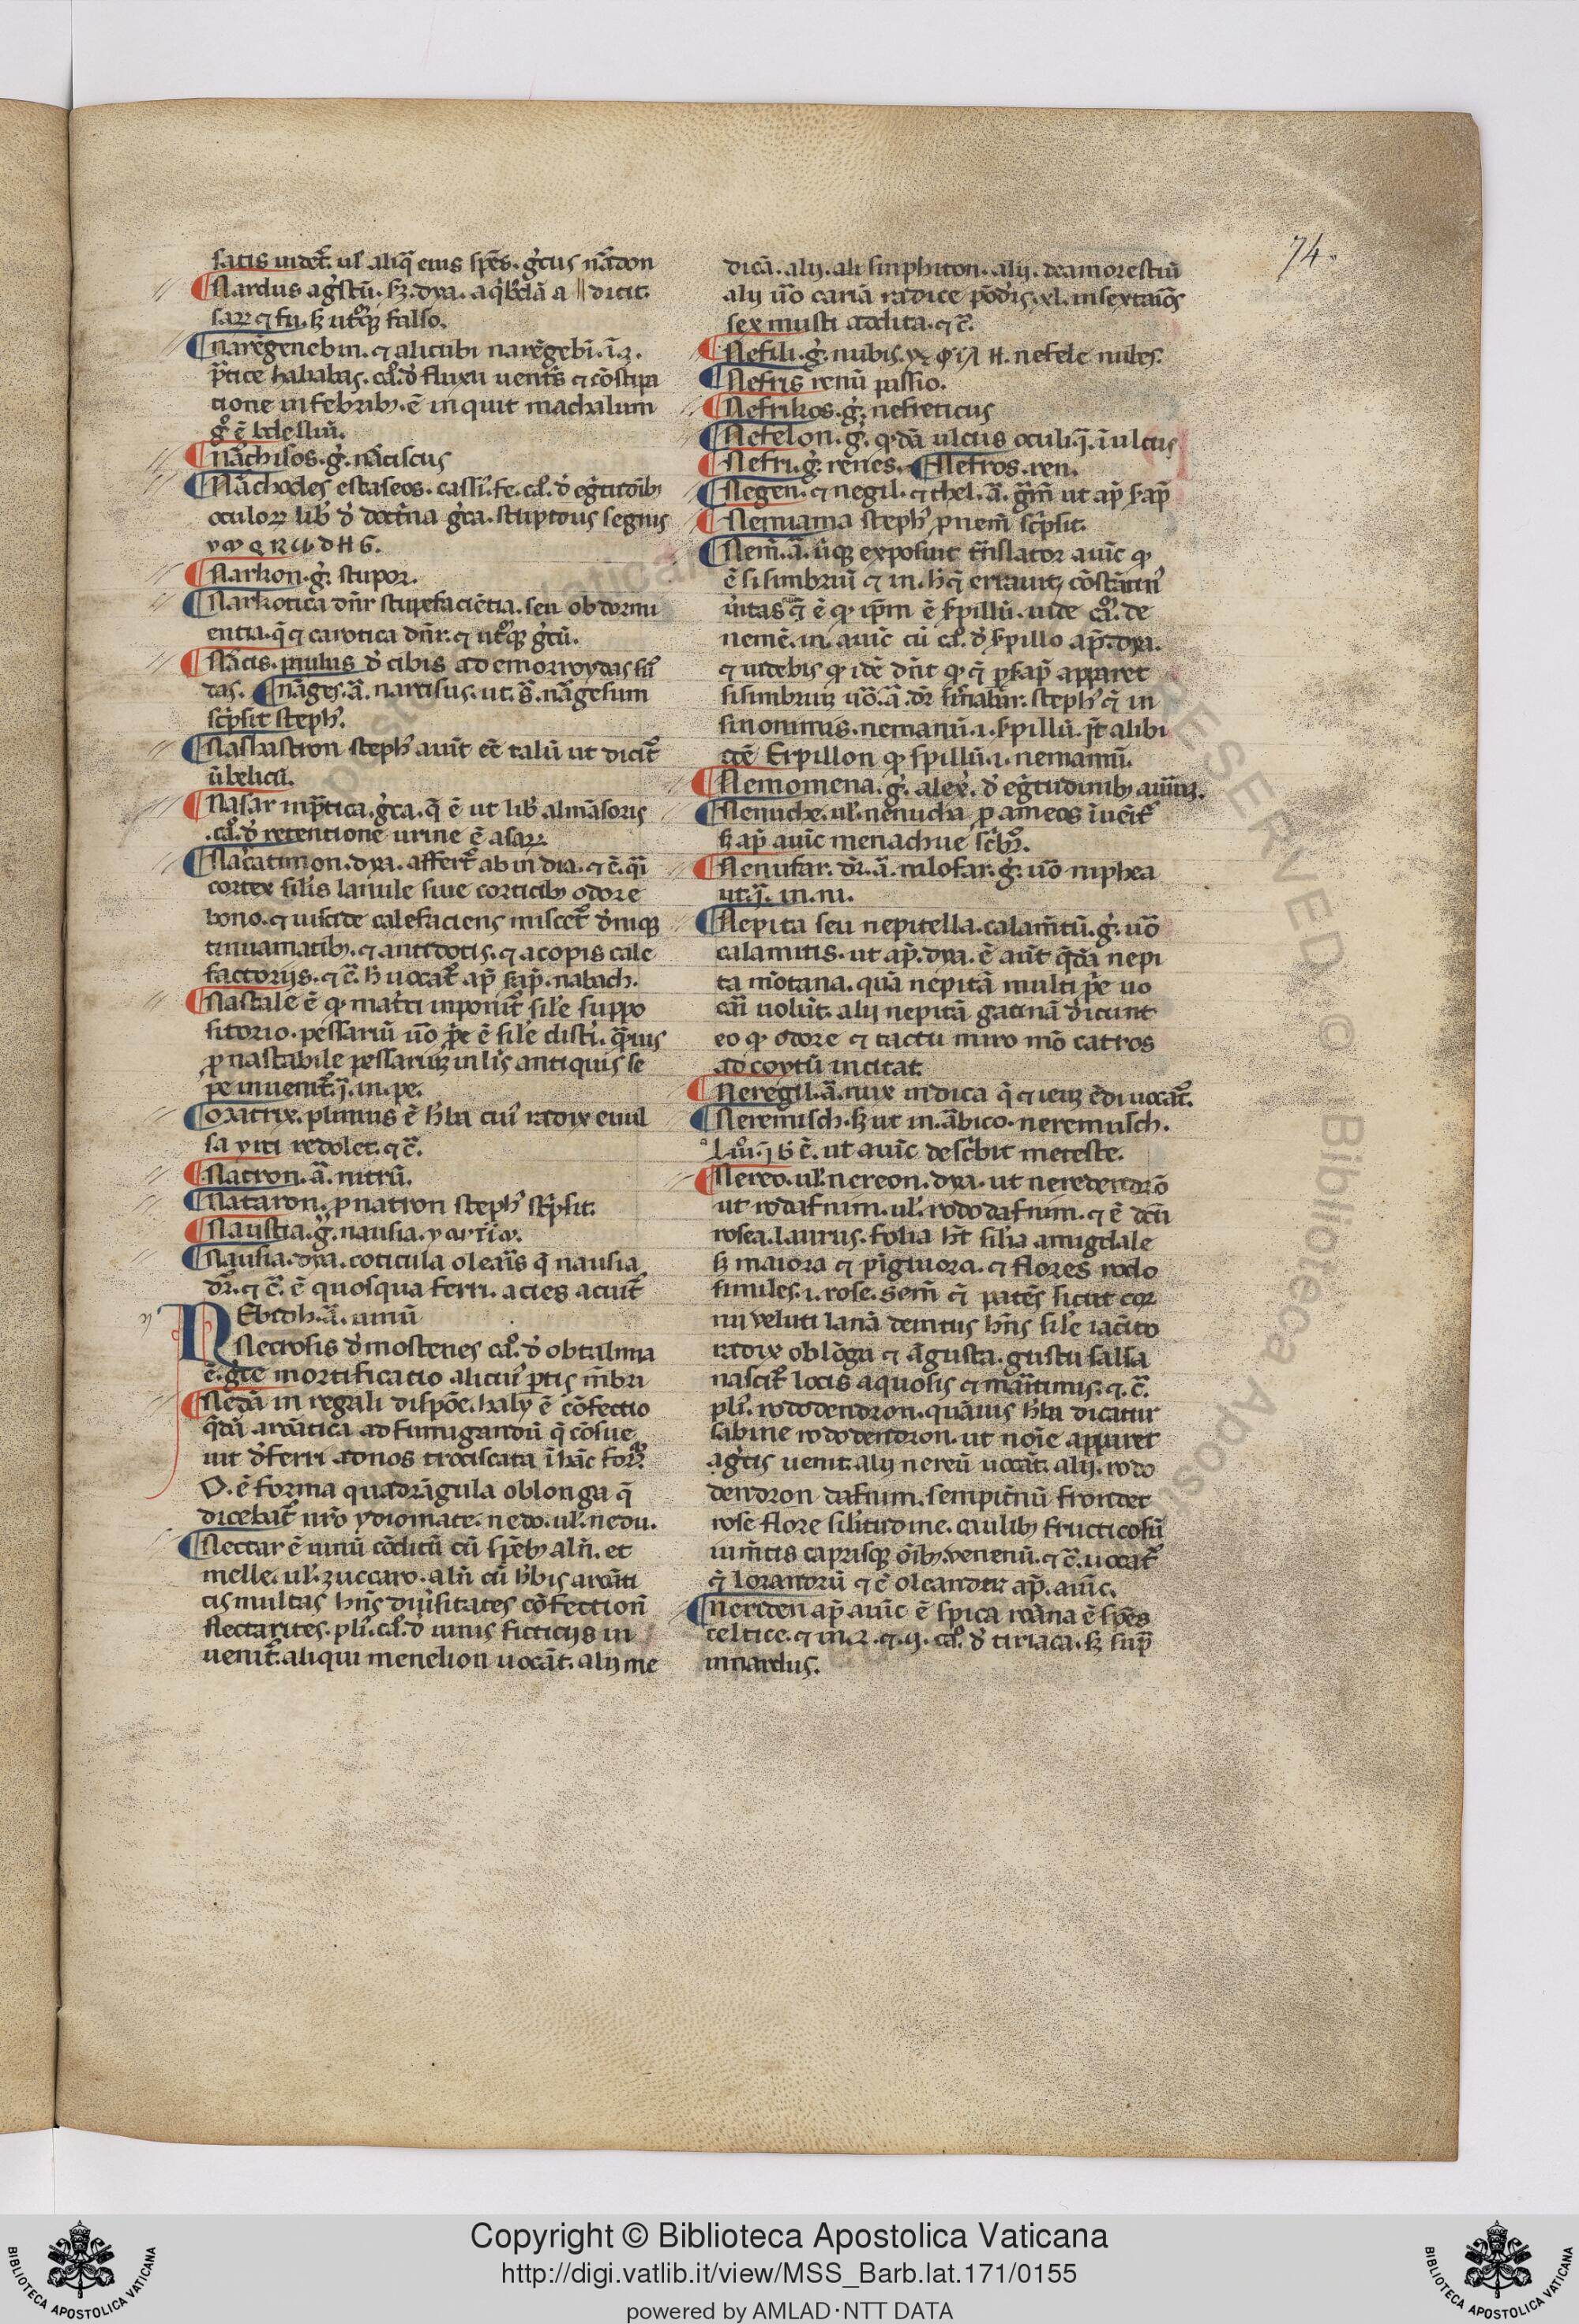 satis uidet̃. ul̃ aliq̃ eius sp̃es. g̃cus nãdon
Nardus ag̃stũ. sʒ. dya. a q̃b̾dã a dicit̃
sar̃ ⁊ fu. sʒ ut̃qʒ falso.
narẽgenebin. ⁊ alicubi narẽgebĩ. ĩ. 3.
p̃tice hababas. cå. đ fluxu uent̾s ⁊ cõstipa
tione in febribʒ. ẽ inquit machalum
g̊ ẽ bdelliũ.
nãchisos. g̾. nãciscus
Nãchodes estaseos. cassi᷒. fe. cå. đ eg̾tudĩbʒ
oculoꝝ lib̾ đ doct̾na g̾ca. stuptous segnis
Narkon. g̾. stupor.
Narkotica dñr stupefaciẽtia. seu obdormi
entia. q̃ ⁊ carotica dñr. ⁊ ut̃qʒ g̾cũ.
Nãcis. mulus đ cibis ad emorroydas
das. nãges. ã. narcisus. ut. s̃. nãgesum
sc̾psit steph̾.
Naskastron steph̾ auñt eẽ talũ ut dicit̃
ũbelicũ.
Nasar in p̃tica. g̾ca. q̃ ẽ ut lib̾ almãsoris
cå. đ retentione urine ẽ asaꝝ
Nascatimon. dya. affert̃ ab india. ⁊ c̃. q̃i
cortex sil̾is lanule siue corticibʒ odore
bono. ⁊ uiscide calefaciens miscet̃ đniqʒ
timiamatibʒ. ⁊ antidotis. ⁊ acopis cale
factoriis. ⁊ c̃. h̾ uocat̃ ap̃ sap̃. nabach.
Nastale ẽ qꝫ mat̾ci inponit̃ sil̾e suppo
sitorio. pessariũ ũo ꝓpe ẽ sil̾e
ꝓ nastabile pessariuʒ in lĩs antiquis se
pe inuenit̃. j̃. in. pe.
oxatrix. plinius ẽ h̾ba cui᷒ radix euul
sa yrci redolet. ⁊ c̃.
Natron. ã. nitrũ.
Nataron. ꝓ natron steph̾ sc̾psit.
Naustia. g̾. nausia.
Nausia. dya. coticula oleãis q̃ nausia
đr. ⁊ c̃. ẽ quosqua ferri. acies acuit̃
NEbidh. ã. uinũ
Necrosis đmostenes cå. đ obtalmia
ẽ. g̾ce mortificatio alicui᷒ ꝑtis mẽbri
Nedã in regali dispõe. haly ẽ cõfectio
q̾dã arõatica ad fumigandũ q̃ cõsue
uit đferri ad nos trociscata ĩ hãc for̃.
D. ẽ forma quadrãgula oblonga q̃
dicebat̃ nr̃o ydiomate. nedo. ul̾. nedu.
Nectar ẽ uinũ cõditũ cũ sp̃ebʒ alñ. et
melle. ul̾. zuccaro. alñ cũ h̾bis arõati
cis multas hñs diũsitates cõfectionũ
Nectarites. pli᷒. cå. đ uinis ficticijs in
uenit̃. aliqui menelion uocãt. alij me
74.
dicã. alij. ali sinphiton. alij. deamorestiũ
alij ũo cariã radice põđis. xl. in sextarios
sex musti addita. ⁊ c̃.
Nefili. g̾. nubis. nefele nubes.
Nefris renũ passio.
Nefrikos. g̾. nefreticus
Nefelon. g̾. q̾dã ulcus oculi. ĩ ulcus
Nefri. g̾. renes. Nefros. ren.
Negen. ⁊ negil. ⁊ thel. ã. g̃m̃ ut ap̃ sap̃
Nemiama steph̾ ꝓ nem̃ sc̾psit.
Nem̃. ã. ũqʒ exposuit tñslator auic̃ qꝫ
ẽ sisimbriũ ⁊ in. h̾ ⁊ errauit cõstãtin᷒
ũitas ẽ ẽ qꝫ ip̃m ẽ s̾pillũ. uide cå. de
nemẽ. in. auic̃ cũ cå. đ s̾pillo ap̃. dya.
⁊ uidebis qꝫ idẽ dñt qꝫ ⁊ ꝑ sap̃ apparet
sisimbriuʒ ũo. ã. đr. steph̾ ⁊ in
sinonimis. nemanũ. i. s̾pillũ. it̃ alibi
g̾ce Erpillon qꝫ s̾pillũ. i. nemamũ.
Nemomena. g̾. alex̾. đ eg̾tudinibʒ
Nenuche. ul̾. nenucha ꝓ ameos ĩuenit̃
sʒ ap̃ auic̃ menachue sc̾bit̃.
Nenufar. đr. ã. nilofar. g̾. ũo niphea
ut. j̃. in. ni.
Nepita seu nepitella. calam̃tũ. g̾. ũo
calamitis. ut ap̃. dya. ẽ aũt q̾dã nepi
ta mõtana. quã nepitã multi ꝓpe uo
cari uolũt. alij nepitã gatinã dicunt
eo qꝫ odore ⁊ tactu miro mõ cattos
ad coytũ incitat.
Neregil. ã. nux indica q̃ ⁊ ieuʒ ẽdi uocat̃.
Neremisch. sʒ ut in. ãbico. neremusch.
ut auic̃ desc̾bit meteste.
Nereo. ul̾. nereon. dya. ut neredendrõ
ut rodafnim. ul̾. rododafnim. ⁊ ẽ dcũ
rosea. laurus. folia h̾t sil̾ia amigdale
sʒ maiora ⁊ pĩguiora. ⁊ flores rodo
similes. i. rose. sem̃ ⁊ patẽs sicut cor
nu veluti lanã deintus hñs sil̾e iacĩto
radix oblõga ⁊ ãgusta. gustu salsa
nascit̃ locis aquosis ⁊ maritimis. ⁊. c̃.
pli᷒. rododendron. quãuis h̾ba dicatur
sabine rododendron. ut noĩe apparet
ag̾tis uenit. alij nereũ uocãt. alij. rodo
dendron dafnim. sempit̾nũ frondet
rose flore sil̾itudine. caulibʒ fructicosũ
iumẽtis caprisqʒ õibʒ. venenũ. ⁊ c̃. uocat̃
⁊ lorandrũ ⁊ ẽ oleander ap̃. auic̃.
nerden ap̃ auic̃ ẽ spica romãna ẽ sp̃es
celtice. ⁊ in. 2. ⁊. 4. cå. đ tiriaca. sʒ sup̃
in nardus.
Copyright © Biblioteca Apostolica Vaticana
http://digi.vatlib.it/view/MSS_Barb.lat.171/0155
powered by AMLAD·NTT DATA
BIBLIOTECA APOSTOLICA VATICANA
BIBLIOTECA APOSTOLICA VATICANA